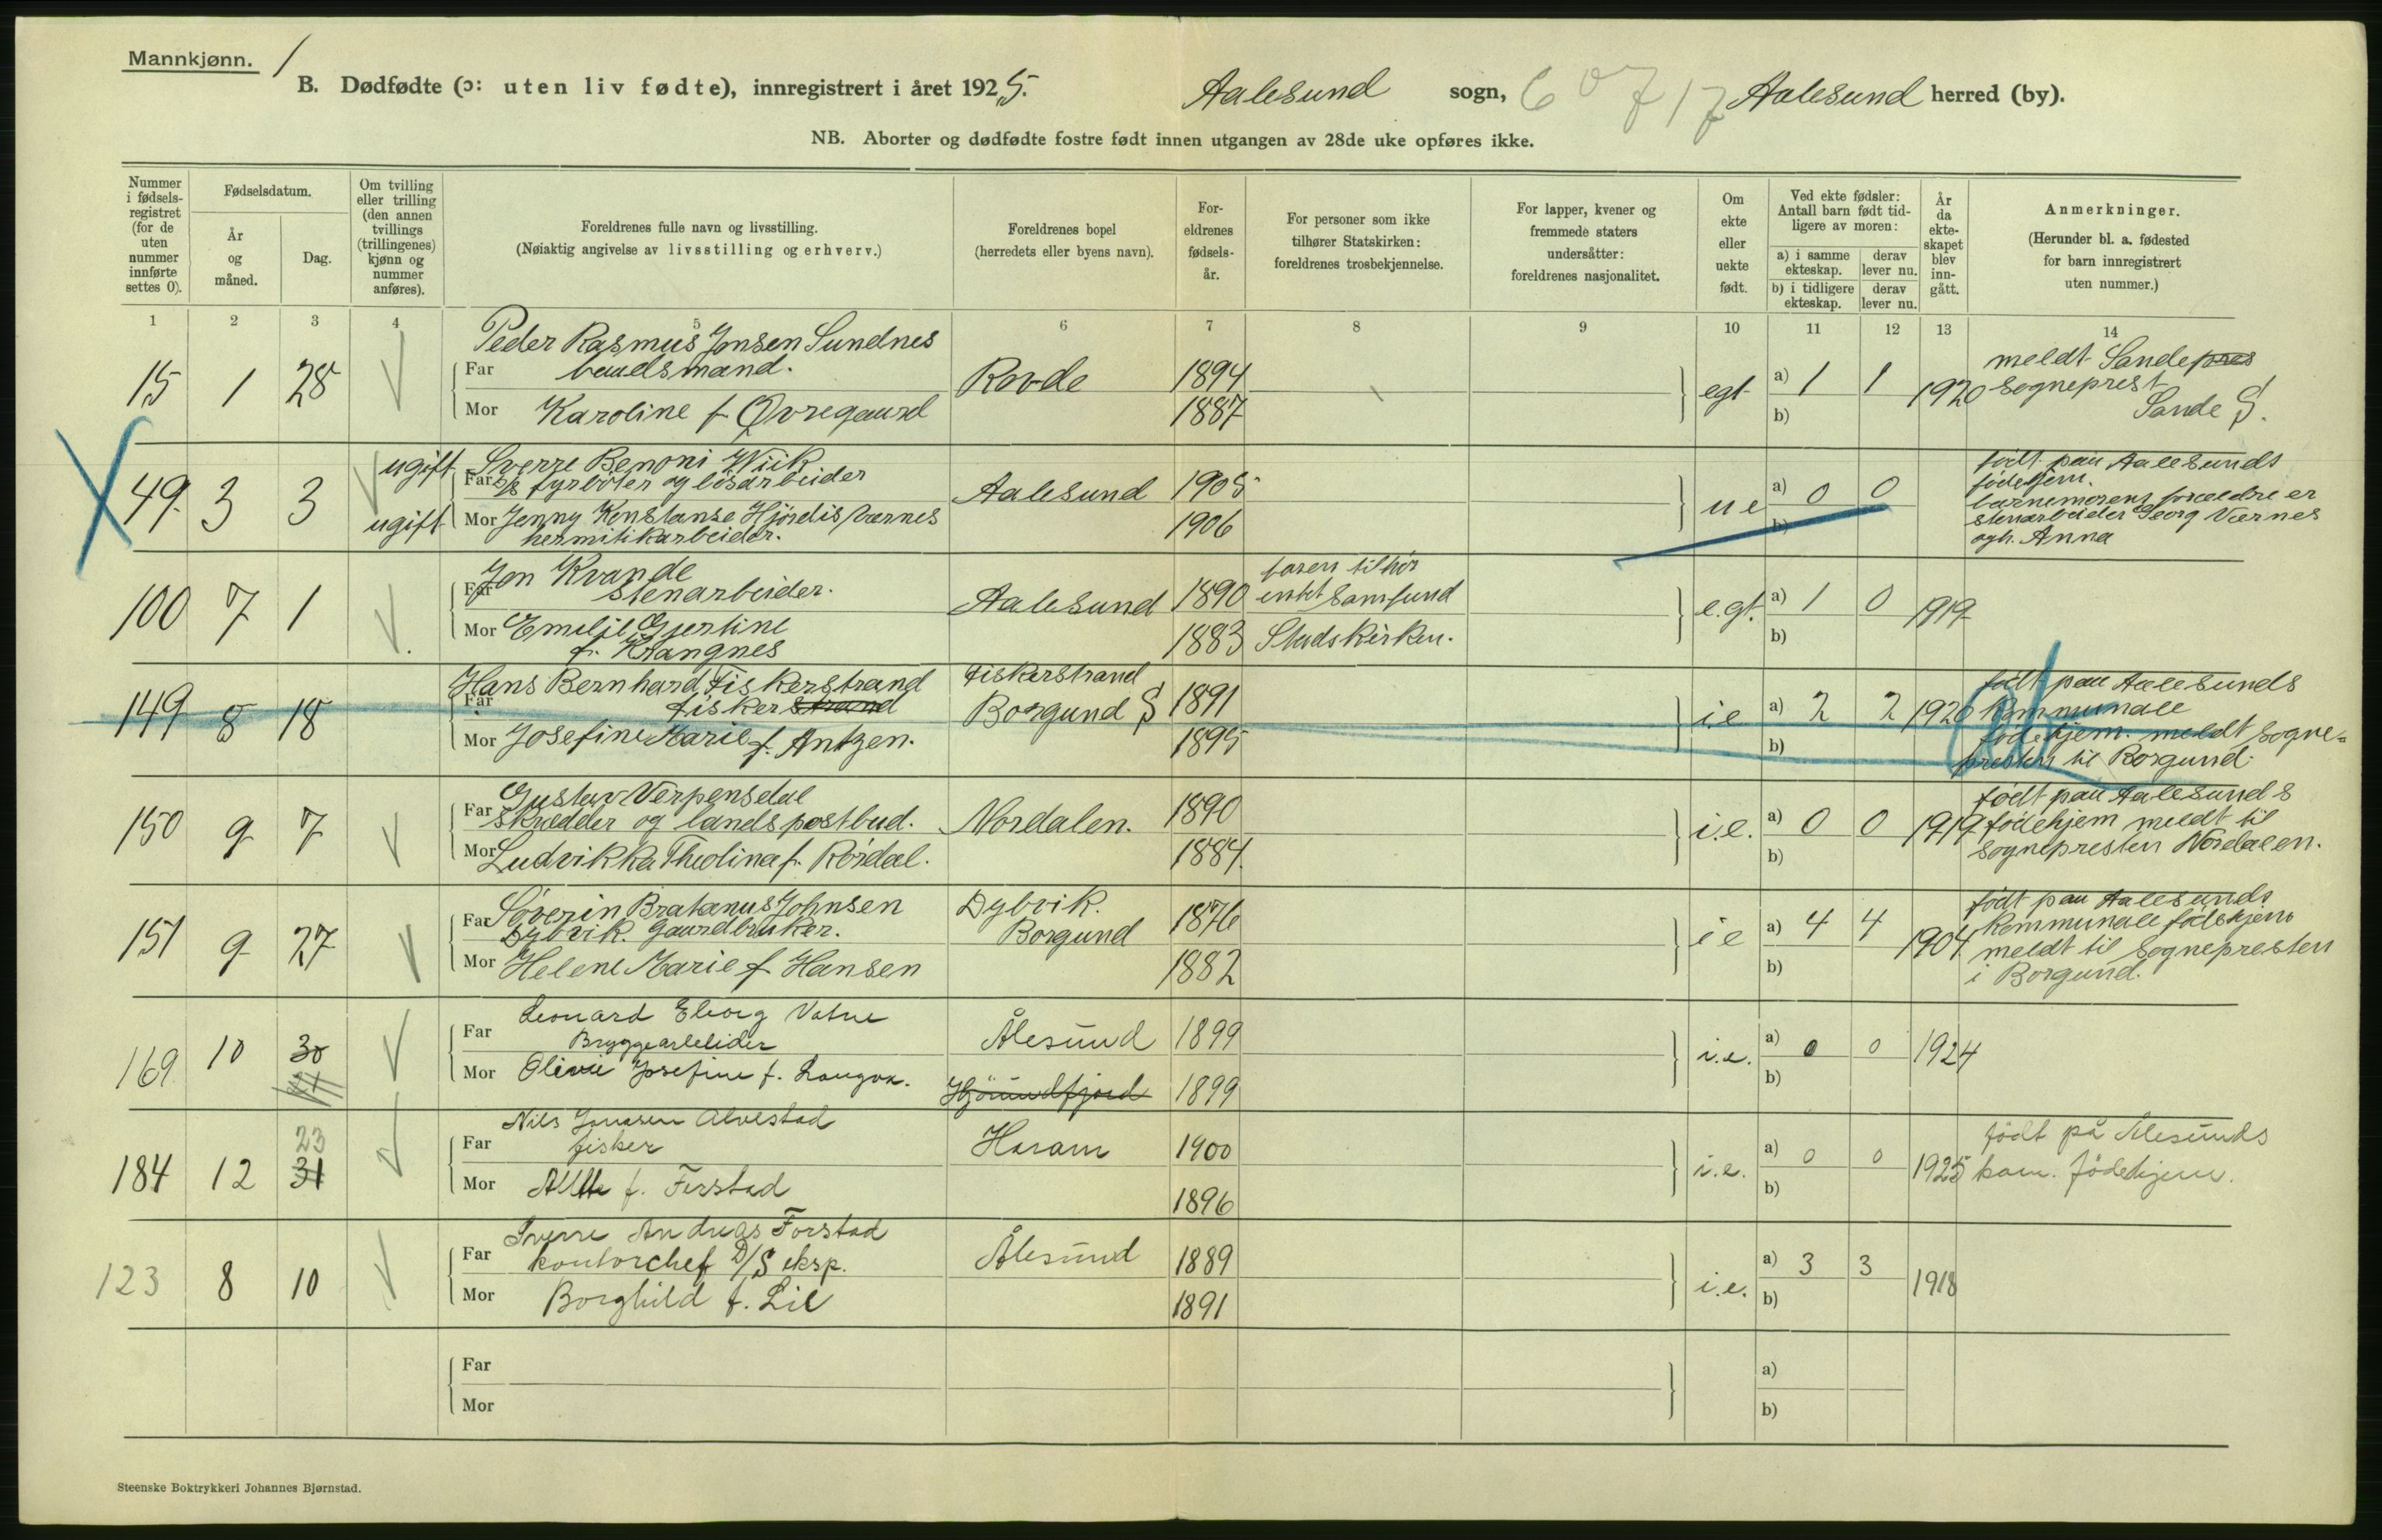 Mannkjønn. 1
B. Dødfødte (ɔ: uten liv fødte), innregistrert i året 1925. Aalesund sogn, 6 0717 Aalesund herred (by).
NB. Aborter og dødfødte fostre født innen utgangen av 28de uke opføres ikke.
Nummer i fødsels-registret (for de uten nummer innførte settes 0).
Fødselsdatum.
År og måned.
Dag.
Om tvilling eller trilling (den annen tvillings (trillingenes) kjønn og nummer anføres).
Foreldrenes fulle navn og livsstilling.
(Nøiaktig angivelse av livsstilling og erhverv.)
Foreldrenes bopel
(herredets eller byens navn).
For-eldrenes fødsels-år.
For personer som ikke tilhører Statskirken: foreldrenes trosbekjennelse.
For lapper, kvener og fremmede staters undersåtter: foreldrenes nasjonalitet.
Om ekte eller uekte født.
Ved ekte fødsler: Antall barn født tid-ligere av moren:
a) i samme ekteskap.
derav lever nu.
b) i tidligere ekteskap.
derav lever nu.
År da ekte-skapet blev inn-gått.
Anmerkninger.
(Herunder bl. a. fødested for barn innregistrert uten nummer.)
1 2 3 4 5 6 7 8 9 10 11 12 13 14
Peder Rasmus Jonsen Sundnes
15 1 28 Far baadsmand. Rovde 1894 egt a) 1 1 1920
Mor Karoline f Øvregaard 1887 b)
meldt Sandepres
sogneprest
Sande S.
ugift Sverre Benoni Wiik
49. 3 3 Far fyrbøter og løsarbeider Aalesund 1905 ue a) 0 0
ugift Mor Jenny Konstanse Hjørdis Værnes 1906 b)
hermitikarbeider.
født paa Aalesunds
fødehjem.
barnemorens foreldre er
stenarbeider Georg Værnes
ogh. Anna
Jon Kvande
100 7 1 Far stenarbeider. Aalesund 1890 e.gt. a) 1 0 1919
Mor Emelie Gjertine 1883 Statskirken. b)
f. Krangnes
faren tilhør
intet samfund
Hans Bernhard Fiskerstrand Fiskerstrand
149 8 18 Far fiskerstrand Borgund S 1891 i.e a) 2 2 1920
Mor Josefine Marie f. Antzen. 1895 b)
født paa Aalesunds
kommunale
fødehjem. meldt sogne=
presten til Borgund.
Gustav Verpensdal
150 9 7 Far skredder og landspostbud. Nordalen. 1890 i.e. a) 0 0 1919
Mor Ludvikka Theolina f. Rørdal. 1884. b)
født paa Aalesunds
fødehjem meldt til
sognepresten Nordalen.
Søverin Bratanus Johnsen Dybvik.
151 9 27 Far Dybvik. Gaardbruker. Borgund 1876 ie a) 4 4 1904.
Mor Helene Marie f Hansen 1882 b)
født paa Aalesunds
kommunale fødehjem
meldt til sognepresten
i Borgund.
Leonard Vatne
169 10 30 Far Bryggearbeider Ålesund 1899 i.e. a) 0 0 1924
Mor Josefine f. Langva. Hjörundfjord 1899 b)
Nils Alvestad
23
184 12 31 Far fisker Haram 1900 i.e. a) 0 0 1925
Mor f. 1896 b)
født på Ålesunds
kom. fødehjem.
Sverre Andreas Forstad
123 8 10 Far kontorchef D/S eksp. Ålesund 1889 i.e. a) 3 3 1918
Mor Borghild f. Lil 1891 b)
Far a)
Mor b)
Steenske Boktrykkeri Johannes Bjørnstad.